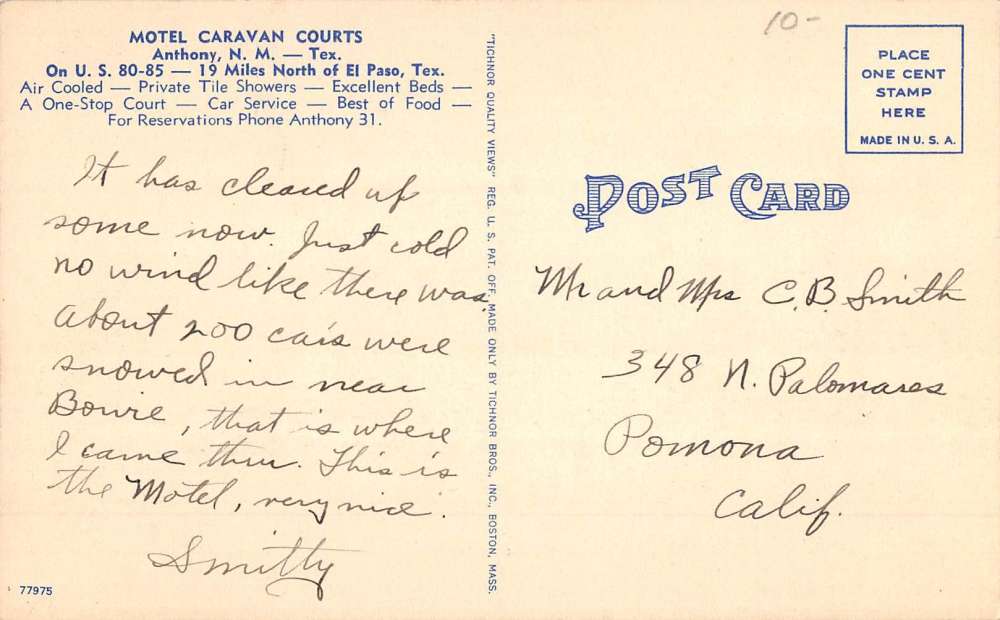 MOTEL CARAVAN COURTS
Anthony, N. M. — Tex.
On U. S. 80-85 — 19 Miles North of El Paso, Tex.
Air Cooled — Private Tile Showers — Excellent Beds —
A One-Stop Court — Car Service — Best of Food —
For Reservations Phone Anthony 31.
It has cleared up
some now. Just cold
no wind like there was.
About 200 cars were
snowed in near
Bowie, that is where
I came thru. This is
the Motel, very nice.
Smitty
77975
"TICHNOR QUALITY VIEWS" REG. U. S. PAT. OFF. MADE ONLY BY TICHNOR BROS., INC., BOSTON, MASS.
10-
PLACE
ONE CENT
STAMP
HERE
MADE IN U. S. A.
POST CARD
Mr and Mrs C. B. Smith
348 N. Palomares
Pomona
Calif.